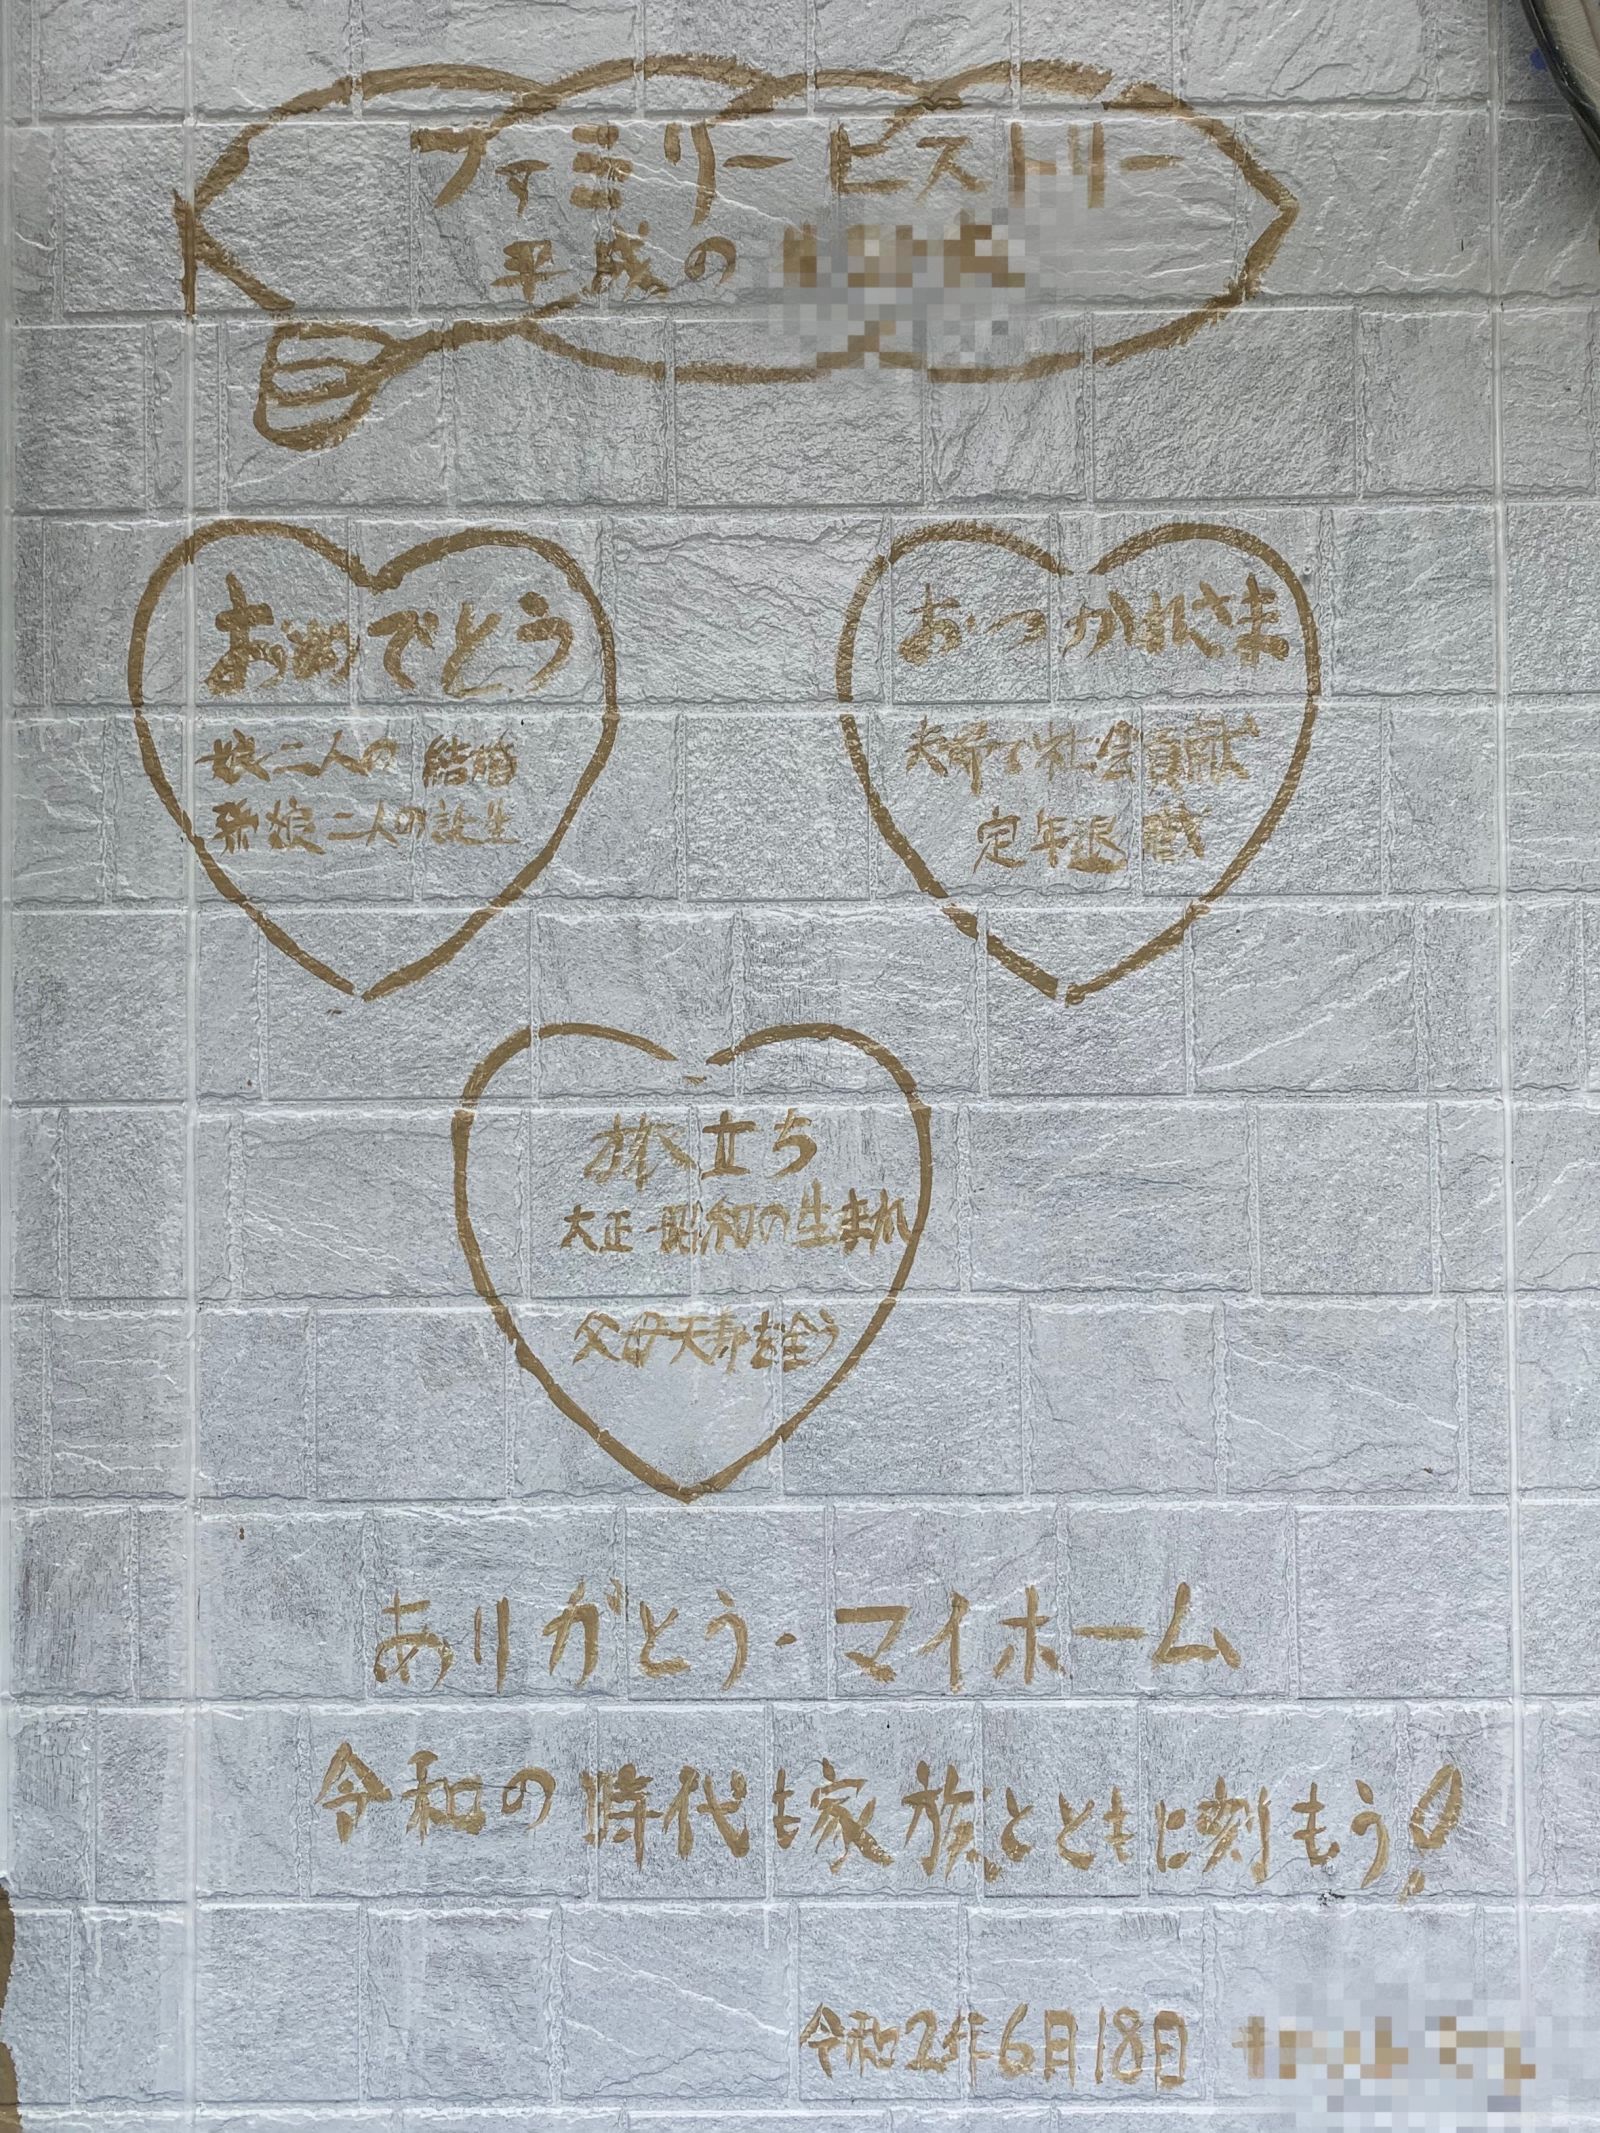 ファミリーヒストリー
平成の
おめでとう
娘二人の結婚
孫娘二人の誕生
おつかれさま
夫婦で社会貢献
定年退職
旅立ち
大正-昭和の生まれ
父母天寿を全う
ありがとう・マイホーム
令和の時代も家族とともに刻もう!
令和2年6月18日